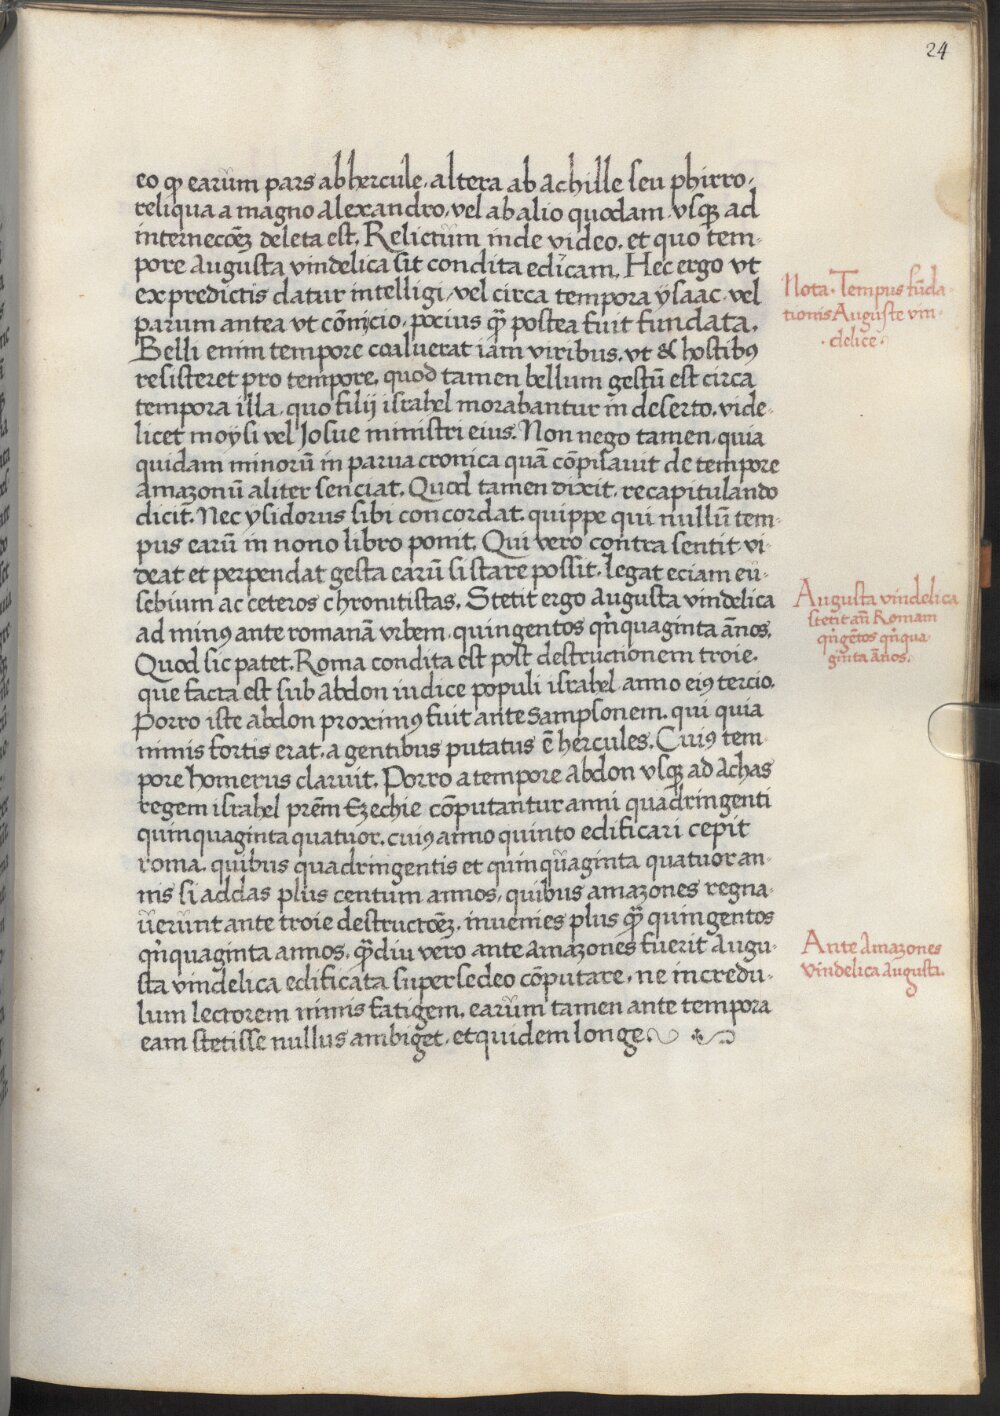 24
eo ꝙ earum pars ab hercule, altera ab achille seu phirro,
reliqua a magno alexandro, vel ab alio quodam vsqꝫ ad
internecōeꝫ deleta est. Relictum inde video, et quo tem-
pore augusta vindelica sit condita edicam. Hec ergo vt
ex predictis datur intelligi, vel circa tempora ysaac, vel
parum antea vt cōnijcio, pocius qꝫ̄ postea fuit fundata.
Belli enim tempore coaluerat iam viribus, vt & hostibꝰ
resisteret pro tempore, quod tamen bellum gestū est circa
tempora illa, quo filij israhel morabantur in deserto, vide-
licet moysi vel Josue ministri eius. Non nego tamen, quia
quidam minorū in parua cronica quā cōpilauit de tempore
amazonū aliter senciat. Quod tamen dixit, recapitulando
dicit. Nec ysidorus sibi concordat, quippe qui nullū tem-
pus earū in nono libro ponit. Qui vero contra sentit vi-
deat et perpendat gesta earū si stare possīt, legat eciam eu-
sebium ac ceteros chronitistas. Stetit ergo augusta vindelica
ad minꝰ ante romanā vrbem, quingentos qn̄quaginta āños.
Quod sic patet. Roma condita est post destructionem troie,
que facta est sub abdon iudice populi israhel anno eiꝰ tercio.
Porro iste abdon proximꝰ fuit ante Sampsonem, qui quia
nimis fortis erat, a gentibus putatus ē hercules. Cuiꝰ tem-
pore homerus claruit. Porro a tempore abdon vsqꝫ ad Achas
regem israhel prēm Ezechie cōputantur anni quadringenti
quinquaginta quatuor, cuiꝰ anno quinto edificari cepit
roma, quibus quadringentis et quinquaginta quatuor an-
nis si addas plus centum annos, quibus amazones regna-
uerunt ante troie destructōeꝫ, inuenies plus qꝫ̄ quingentos
qn̄quaginta annos, qꝫ̄diu vero ante amazones fuerit augu-
sta vindelica edificata supersedeo cōputare, ne incredu-
lum lectorem nimis fatigem, earum tamen ante tempora
eam stetisse nullus ambiget, et quidem longe.
Nota. Tempus fūda-
tionis Auguste vin-
delice.
Augusta vindelica
stetit an̄ Romam
qn̄gētos qn̄qua-
ginta āños.
Ante Amazones
vindelica augusta.